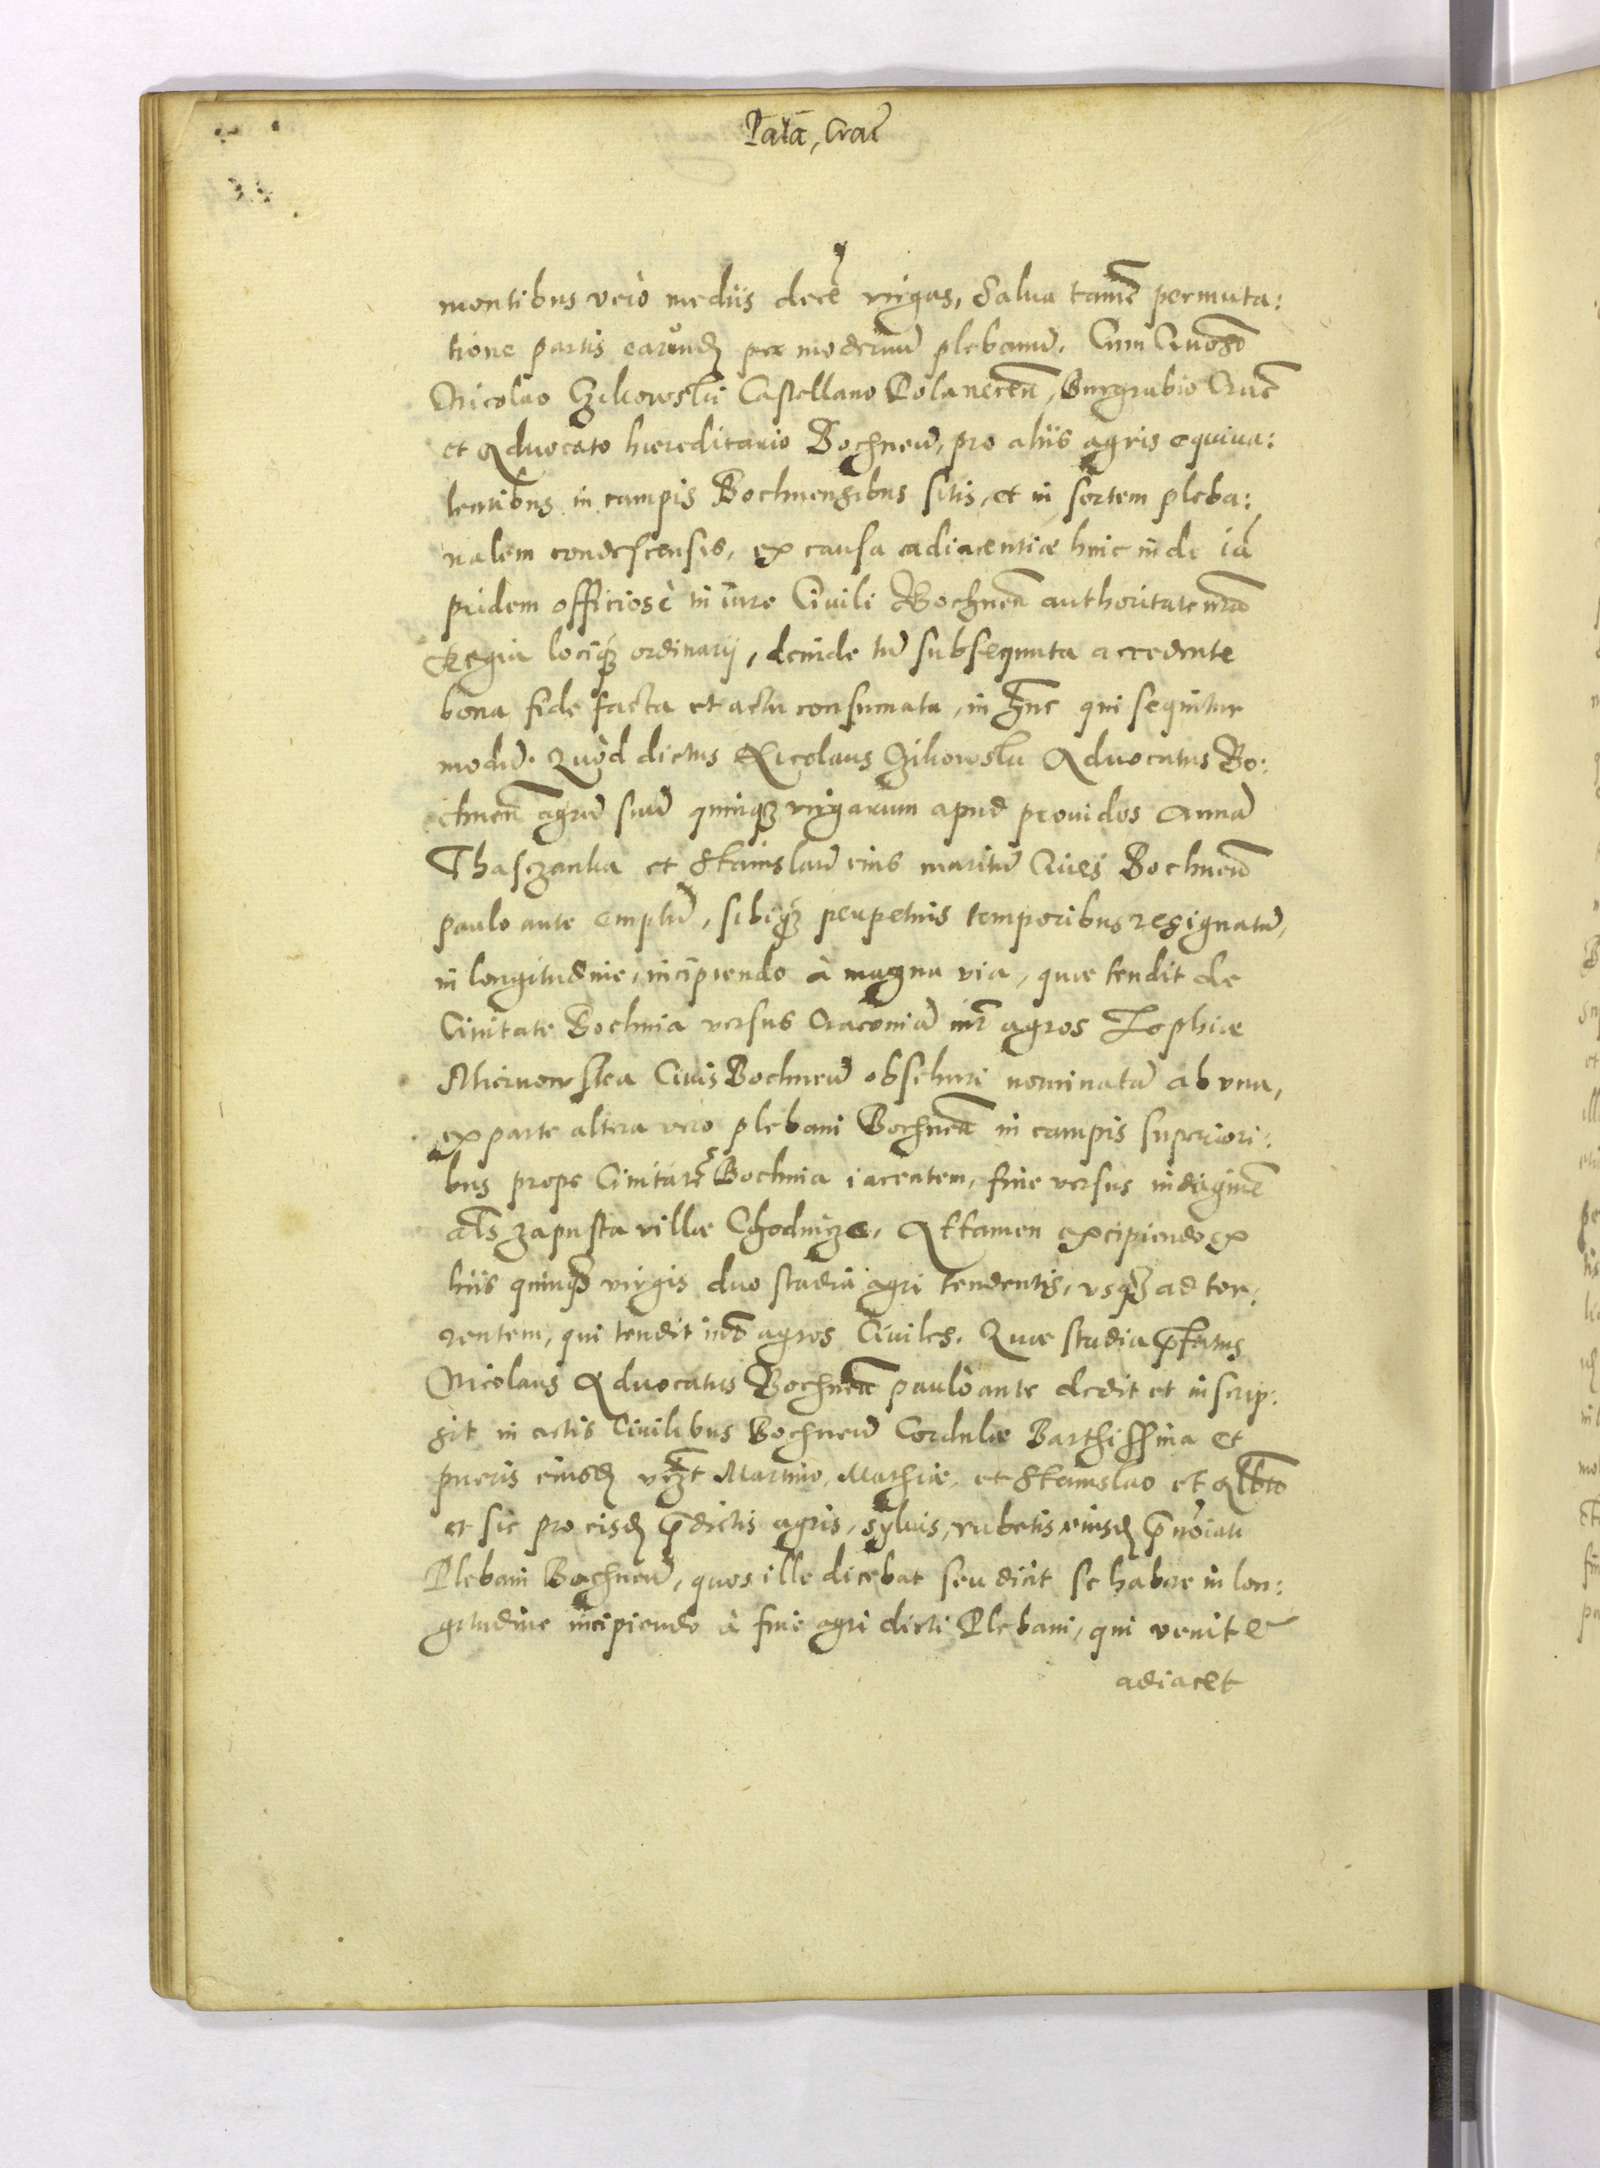 Palā, Crac̄
montibus verò mediis decē virgas, Salua tamē permuta:
tione partis earūdē per modernū plebanū. Cum Gnoso
Nicolao Czikowski Castellano Polanecen̄, Burgrabio Crac̄
et Aduocato hæreditario Bochnen̄, pro aliis agris equiua:
lentibus in campis Bochnensibus sitis, et in sortem pleba:
nalem condescensis, ex causa adiacentiæ hinc inde iā
pridem officiosè in iure Ciuili Bochnen̄ authoritate nr̄a
Regia lociq₃ ordinarij, deinde tū subsequuta accedente
bona fide facta et actu consumata, in hunc qui sequitur
modū. Quòd dictus Nicolaus Czikowski Aduocatus Bo:
chnen̄ agrū suū quinq₃ virgarum apud prouidos Annā
Thasczanka et Stanislaū eius maritū Ciues Bochnen̄
paulo ante emptū, sibiq₃ perpetuis temporibus resignatū,
in longitudine, incipiendo à magna via, quæ tendit de
Ciuitate Bochnia versus Cracouiā intr̄ agros Zophiæ
Miernowska Ciuis Bochnen̄ obschuri nominatā ab vna,
ex parte altera vero plebani Bochnen̄ in campis superiori:
bus prope Ciuitatē Bochnia iacentem, fine versus indaginē
al̄s zapusta villæ Chodnicze, Attamen excipiendo ex
hiis quinq₃ virgis duo stadia agri tendentis, vsq₃ ad tor:
rentem, qui tendit int̄ agros Ciuiles. Quæ stadia p̄fatus
Nicolaus Aduocatus Bochnen̄ paulò ante dedit et inscrip:
sit in actis Ciuilibus Bochnen̄ Cordulæ Barthissina et
pueris eiusdē vc₃t Martino, Mathiæ, et Stanislao et Albto
et sic pro eisdē p̄dictis agris, syluis, rubetis eiusdē p̄no̅iati
Plebani Bochnen̄, quos ille dicebat seu dicit se habere in lon:
gitudine incipiendo à fine agri dicti Plebani, qui venit et
adiacet